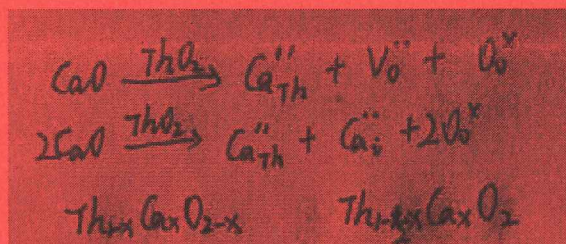 CaO —ThO₂→ Ca_Th'' + V_O^•• + O_O^×
2CaO —ThO₂→ Ca_Th'' + Ca_i^•• + 2O_O^×
Th₁₋ₓCaₓO₂₋ₓ CaₓO₂